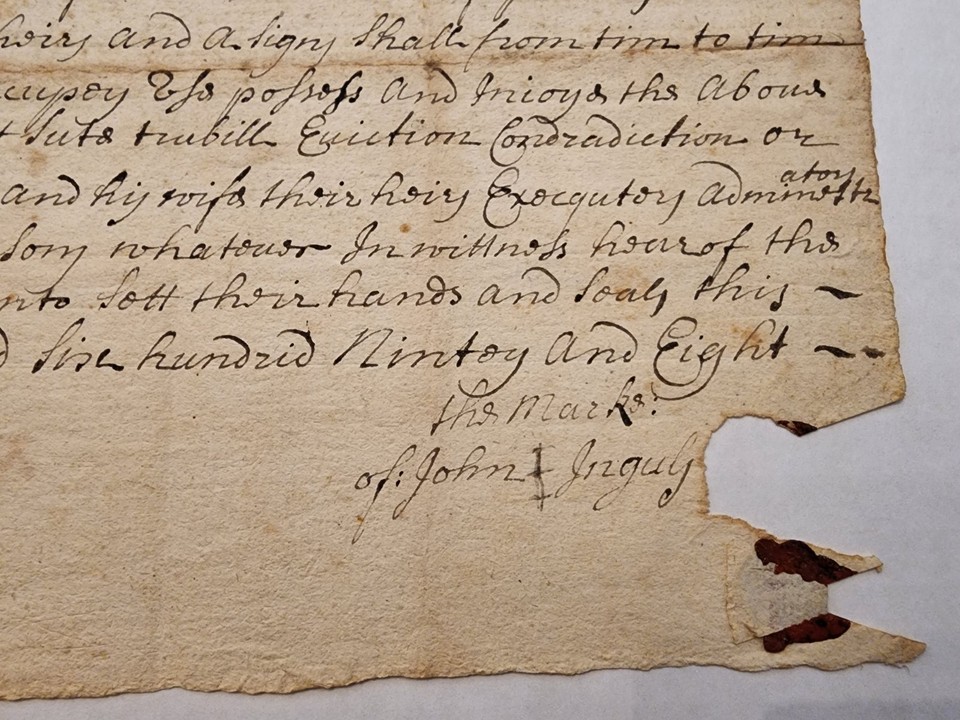 heirs and asigns shall from tim to tim
ccupey Use possess and Inioye the Aboue
t sute trubill Eviction Condradiction or
and his wife their heirs Execqutors Administrators
sons whateuer In wittness hearof the
nto sett their hands and seals this
d six hundrid Nintey and Eight
the Marke:
of: John Inguls